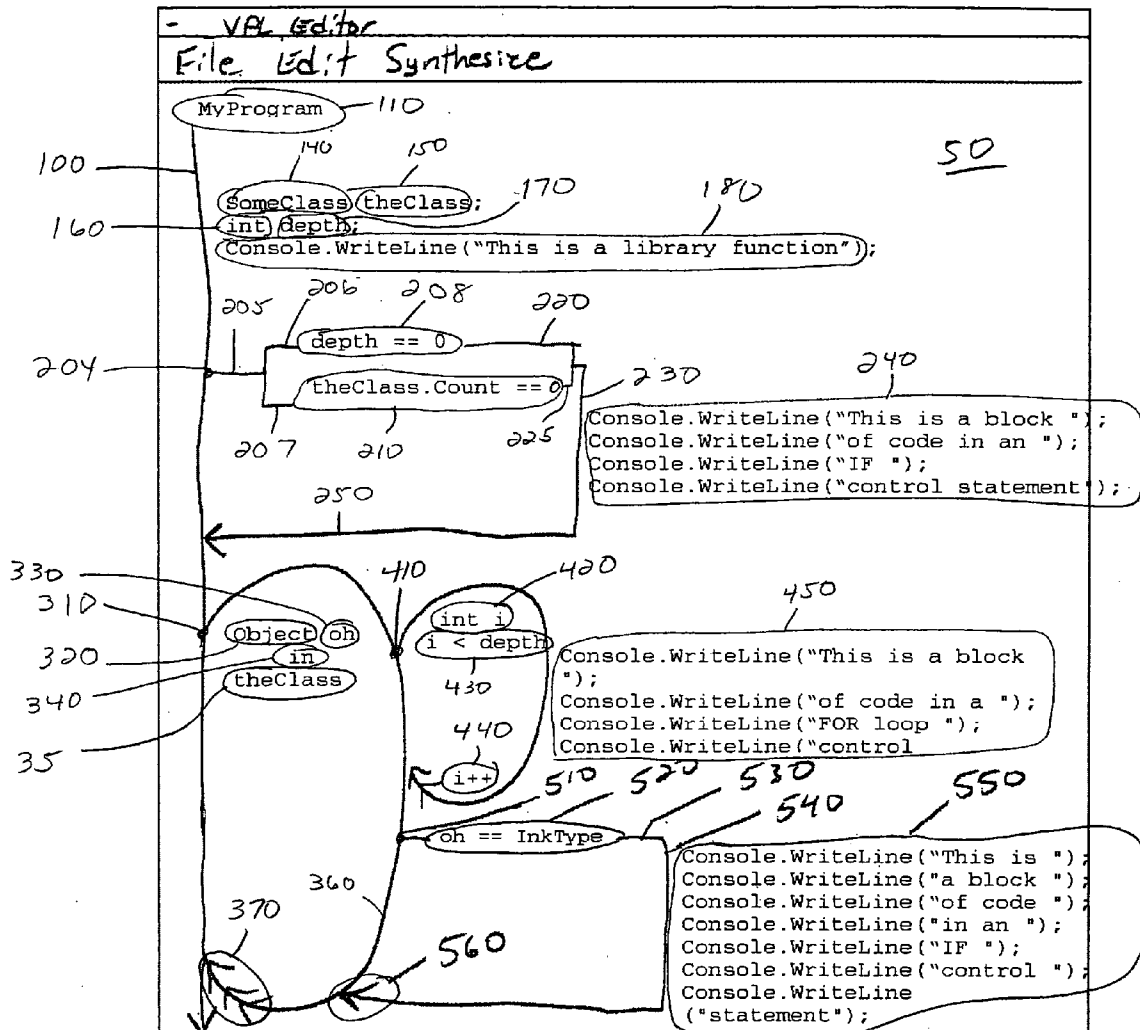 - VPL Editor
File Edit Synthesize
MyProgram 110
50
100
140 150
someClass theClass; 170 180
160 int depth;
Console.WriteLine("This is a library function");
205 206 208 220
depth == 0
204
theClass.Count == 0 230 240
207 210 225
Console.WriteLine("This is a block ");
Console.WriteLine("of code in an ");
Console.WriteLine("IF ");
Console.WriteLine("control statement");
250
330 410 420 450
310
Object oh int i
320 i < depth
in
340 430
theClass
35
Console.WriteLine("This is a block
");
Console.WriteLine("of code in a ");
Console.WriteLine("FOR loop ");
Console.WriteLine("control
440
i++ 510 520 530
540 550
oh == InkType
360
370 560
Console.WriteLine("This is ");
Console.WriteLine("a block ");
Console.WriteLine("of code ");
Console.WriteLine("in an ");
Console.WriteLine("IF ");
Console.WriteLine("control ");
Console.WriteLine
("statement");